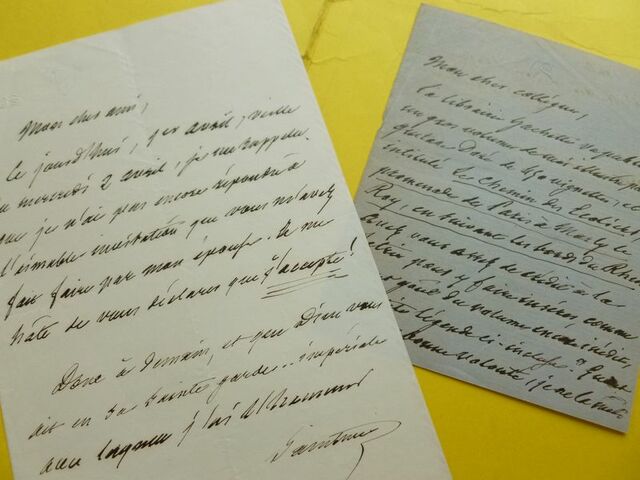 Mon cher ami,
Ce jourd'hui, 1er avril, veille
du mercredi 2 avril, je me rappelle
que je n'ai pas encore répondu à
l'aimable invitation que vous m'avez
fait faire par mon épouse. Je me
hâte de vous déclarer que j'accepte!
Donc à demain, et que Dieu vous
ait en sa sainte garde.. impériale
avec laquelle j'ai
Saintine
Mon cher collègue,
La librairie Hachette va publier
un gros volume de moi illustré par
Gustave Doré de 450 vignettes, et
intitulé Le Chemin des Ecoliers,
promenade de Paris à Marly le
Roy, en suivant les bords du Rhin
vous assez de crédit à la
pour y faire insérer, comme
du volume encore inédit,
légende ci-incluse?
bonne volonté